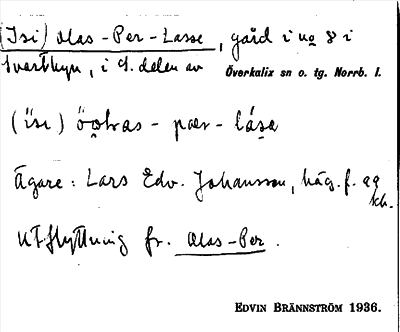 (Isi) Olas-Per-Lasse, gård i no 8 i
Svartbyn, i S. delen av Överkalix sn o. tg. Norrb. l.
(isi) - pær - lása
Ägare: Lars Edv. Johansson, häg. f. og
kh.
Utflyttning fr. Olas-Per.
EDVIN BRÄNNSTRÖM 1936.